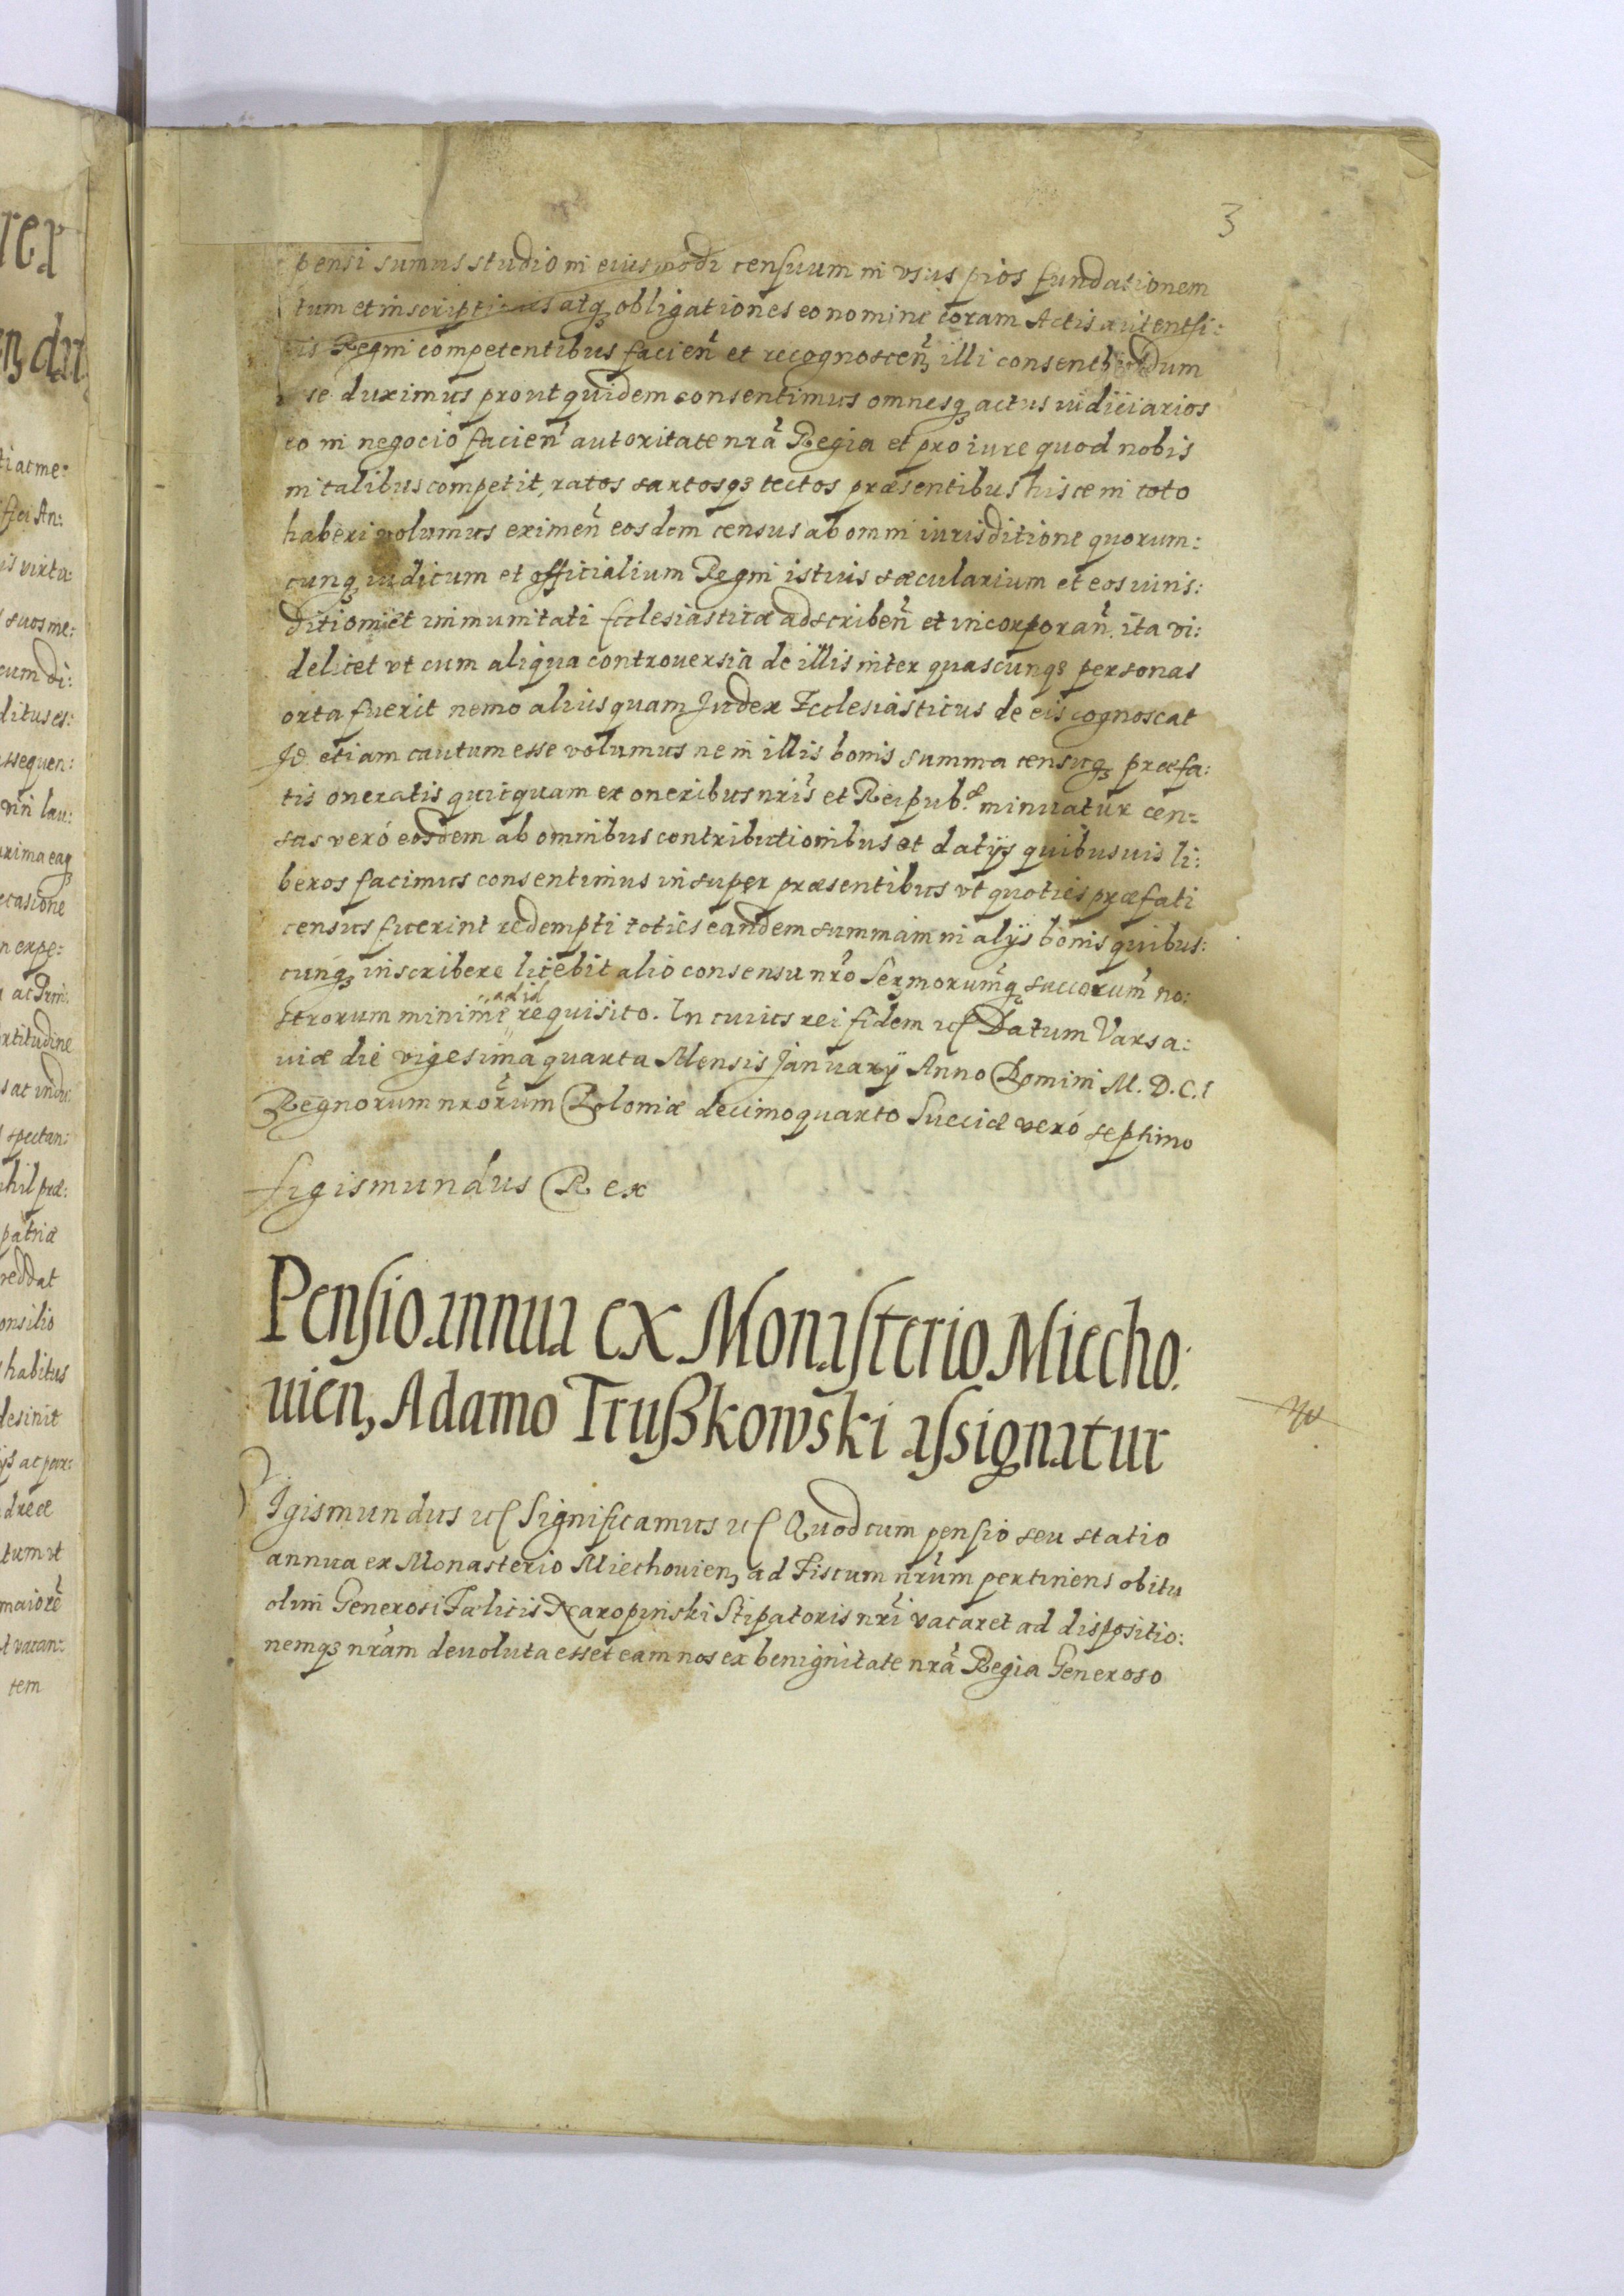 3
pensi sumus studio in eiusmodi censuum in vsus pios fundationem
tum et inscriptiones atqꝫ obligationes eo nomine coram Actis autentsi:
is Regni competentibus facien̄ et recognoscenꝫ illi consene dum
se duximus prout quidem consentimus omnesqꝫ actus iudiciarios
eo in negocio facien̄ autoritate nr̄a Regia et pro iure quod nobis
in talibus competit, ratos sartosqꝫ tectos præsentibus hisce in toto
haberi volumus eximen̄ eosdem census ab omni iurisditione quorum:
cunqꝫ iudicum et officialium Regni istius sæcularium et eos iuris:
ditioni et immunitati Ecclesiasticæ adscriben̄ et incorporan̄. ita vi:
delicet vt cum aliqua controuersia de illis inter quascunqꝫ personas
orta fuerit nemo alius quam Judex Ecclesiasticus de eis cognoscat
Jd etiam cautum esse volumus ne in illis bonis summa censuqꝫ præfa:
tis oneratis quicquam ex oneribus nris̄ et Reipub.æ minuatur cen:
sus veró eosdem ab omnibus contributionibus et datijs quibusuis li:
beros facimus consentimus insuper præsentibus vt quoties præfati
census fuerint redempti toties eandem summam in alijs bonis quibus:
cunqꝫ inscribere licebit alio consensu nr̄o Serꝫmorumqꝫ succorum̄ no:
strorum minime ad id requisito. In cuius rei fidem ꝛc Datum Varsa:
uiæ die vigesima quarta Mensis Januarij Anno Domini M. D. C. I
Regnorum nrōrum Poloniæ decimoquarto Sueciæ veró septimo
Sigismundus Rex
Pensio annua ex Monasterio Miecho:
uienꝫ Adamo Trußkowski assignatur
SIgismundus ꝛc Significamus ꝛc Quod cum pensio seu statio
annua ex Monasterio Miechouienꝫ ad Fiscum nrūm pertinens obitu
olim Generosi Fælicis Xaropinski Stipatoris nrī vacaret ad dispositio:
nemqꝫ nrām deuoluta esset eam nos ex benignitate nrā Regia Generoso